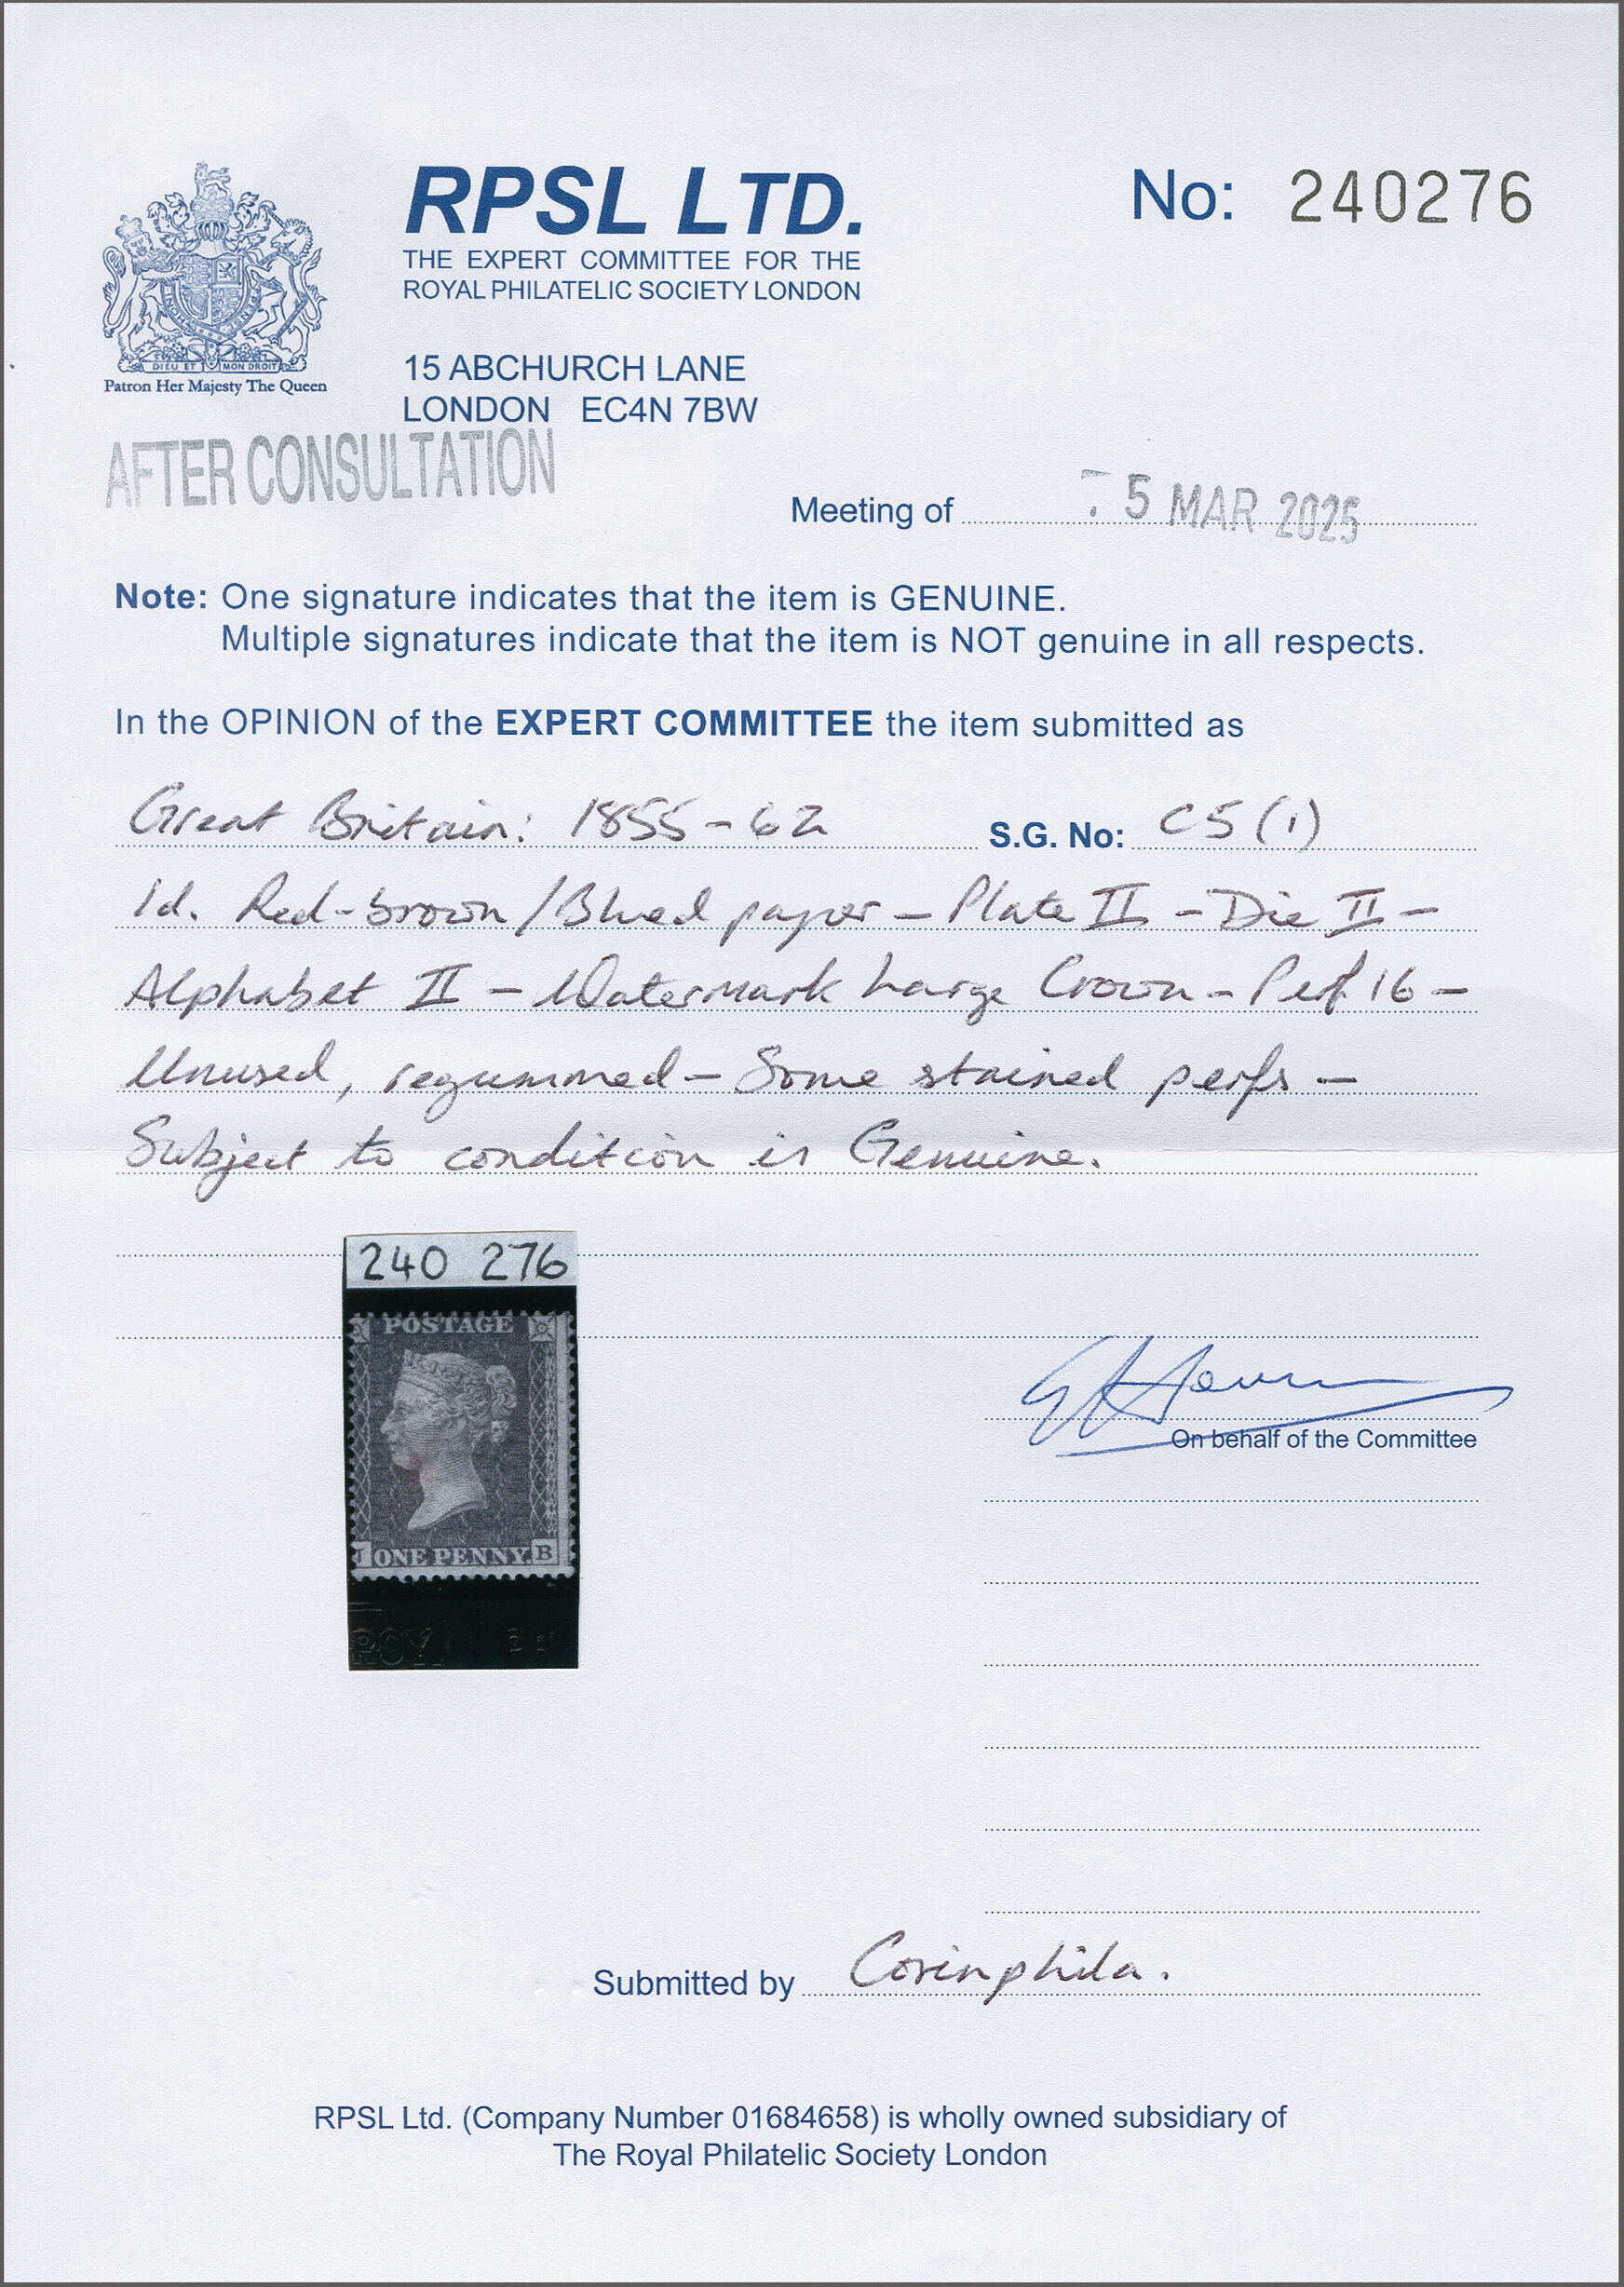 RPSL LTD.
THE EXPERT COMMITTEE FOR THE
ROYAL PHILATELIC SOCIETY LONDON
No: 240276
DIEU ET MON DROIT
Patron Her Majesty The Queen
15 ABCHURCH LANE
LONDON EC4N 7BW
AFTER CONSULTATION
Meeting of 5 MAR 2025
Note: One signature indicates that the item is GENUINE.
Multiple signatures indicate that the item is NOT genuine in all respects.
In the OPINION of the EXPERT COMMITTEE the item submitted as
Great Britain: 1855-62 S.G. No: C5(1)
1d. Red-brown/Blued paper - Plate II - Die II -
Alphabet II - Watermark Large Crown - Perf 16 -
Unused, regummed - Some stained perfs -
Subject to condition is Genuine.
240 276
POSTAGE
ONE PENNY. B
On behalf of the Committee
Submitted by Corinphila.
RPSL Ltd. (Company Number 01684658) is wholly owned subsidiary of
The Royal Philatelic Society London